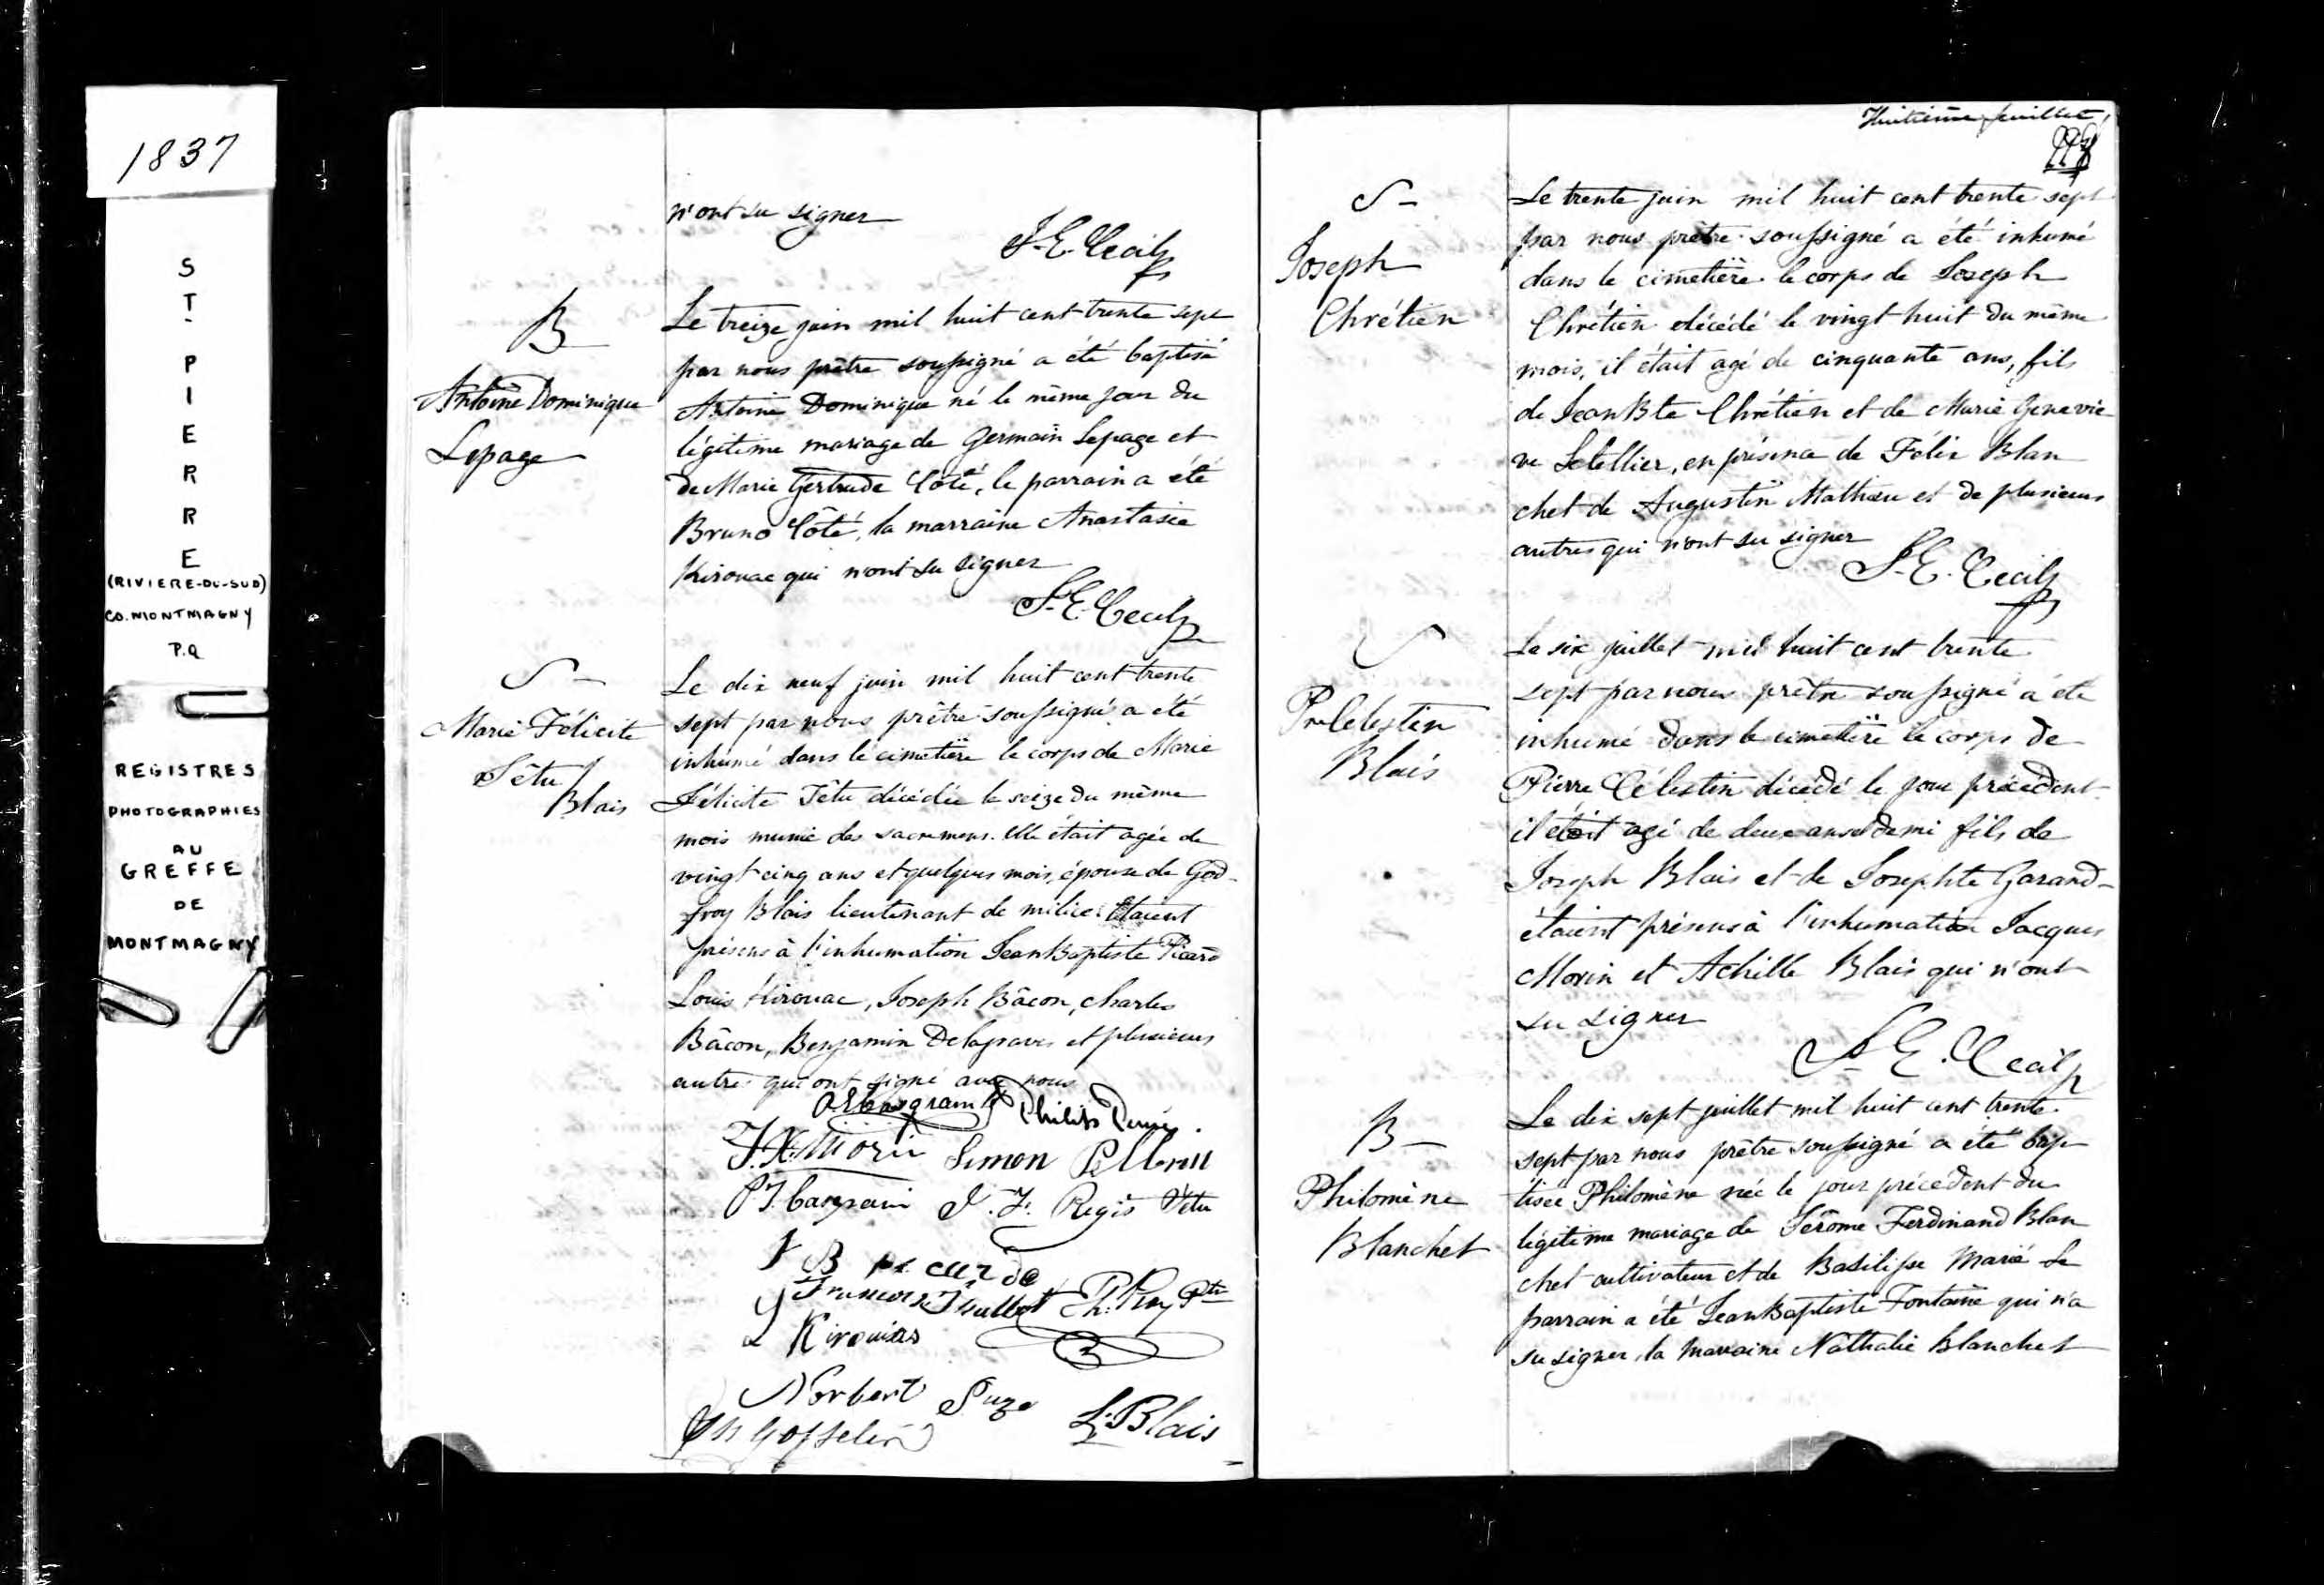 1837
ST-PIERRE
(RIVIERE-DU-SUD)
CO. MONTMAGNY
P.Q
REGISTRES
PHOTOGRAPHIES
AU
GREFFE
DE
MONTMAGNY
n'ont su signer
J. E. Cecil ptre
B
Antoine Dominique
Lepage
Le treize juin mil huit cent trente sept
par nous prêtre soussigné a été baptisé
Antoine Dominique né le même jour du
légitime mariage de Germain Lepage et
de Marie Gertrude Côté, le parrain a été
Bruno Côté, la marraine Anastasie
Kirouac qui n'ont su signer
J. E. Cecil ptre
S
Marie Félicité
Têtu
Blais
Le dix neuf juin mil huit cent trente
sept par nous prêtre soussigné a été
inhumé dans le cimetière le corps de Marie
Félicité Têtu décédée le seize du même
mois munie des sacremens. Elle était agée de
vingt cinq ans et quelques mois, épouse de God-
froy Blais lieutenant de milice. Etaient
présens à l'inhumation Jean Baptiste Picard
Louis Kirouac, Joseph Bâcon, Charles
Bâcon, Benjamin Delagraves et plusieurs
autres qui ont signé avec nous
F. X. Morin Simon Pelleren
P. T. Casgrain J. F. Regis Têtu
J B Picard
Francois Ph. Roy Ptre
L Kirouias
Norbert
Gosselin L. Blais
Huitième feuillet,
S-
Joseph
Chrétien
Le trente juin mil huit cent trente sept
par nous prêtre soussigné a été inhumé
dans le cimetière le corps de Joseph
Chrétien décédé le vingt huit du même
mois, il était agé de cinquante ans, fils
de Jean Bte Chrétien et de Marie Genevie
ve Letellier, en présence de Félix Blan
chet de Augustin Mathieu et de plusieurs
autres qui n'ont su signer
J. E. Cecil ptre
S
Pre Celestin
Blais
Le six juillet mil huit cent trente
sept par nous prêtre soussigné a été
inhumé dans le cimetière le corps de
Pierre Célestin décédé le jour précédent
il étoit agé de deux ans et demi fils de
Joseph Blais et de Josephte Garand-
étaient présens à l'inhumation Jacques
Morin et Achille Blais qui n'ont
su signer
J. E. Cecil ptre
B-
Philomène
Blanchet
Le dix sept juillet mil huit cent trente
sept par nous prêtre soussigné a été bap
tisée Philomène née le jour précédent du
légitime mariage de Jérôme Ferdinand Blan
chet cultivateur et de Basilisse Marié Le
parrain a été Jean Baptiste Fontaine qui n'a
su signer, la marraine Nathalie Blanchet